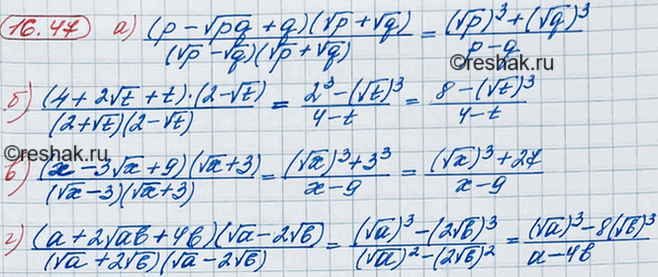 16.47 а) (p - √pq + q)(√p + √q) / (√p - √q)(√p + √q) = (√p)³ + (√q)³ / p - q
©reshak.ru
б) (4 + 2√t + t)·(2 - √t) / (2 + √t)(2 - √t) = 2³ - (√t)³ / 4 - t = 8 - (√t)³ / 4 - t
©reshak.ru
в) (x - 3√x + 9)(√x + 3) / (√x - 3)(√x + 3) = (√x)³ + 3³ / x - 9 = (√x)³ + 27 / x - 9
г) (a + 2√ab + 4b)(√a - 2√b) / (√a + 2√b)(√a - 2√b) = (√a)³ - (2√b)³ / (√a)² - (2√b)² = (√a)³ - 8(√b)³ / a - 4b